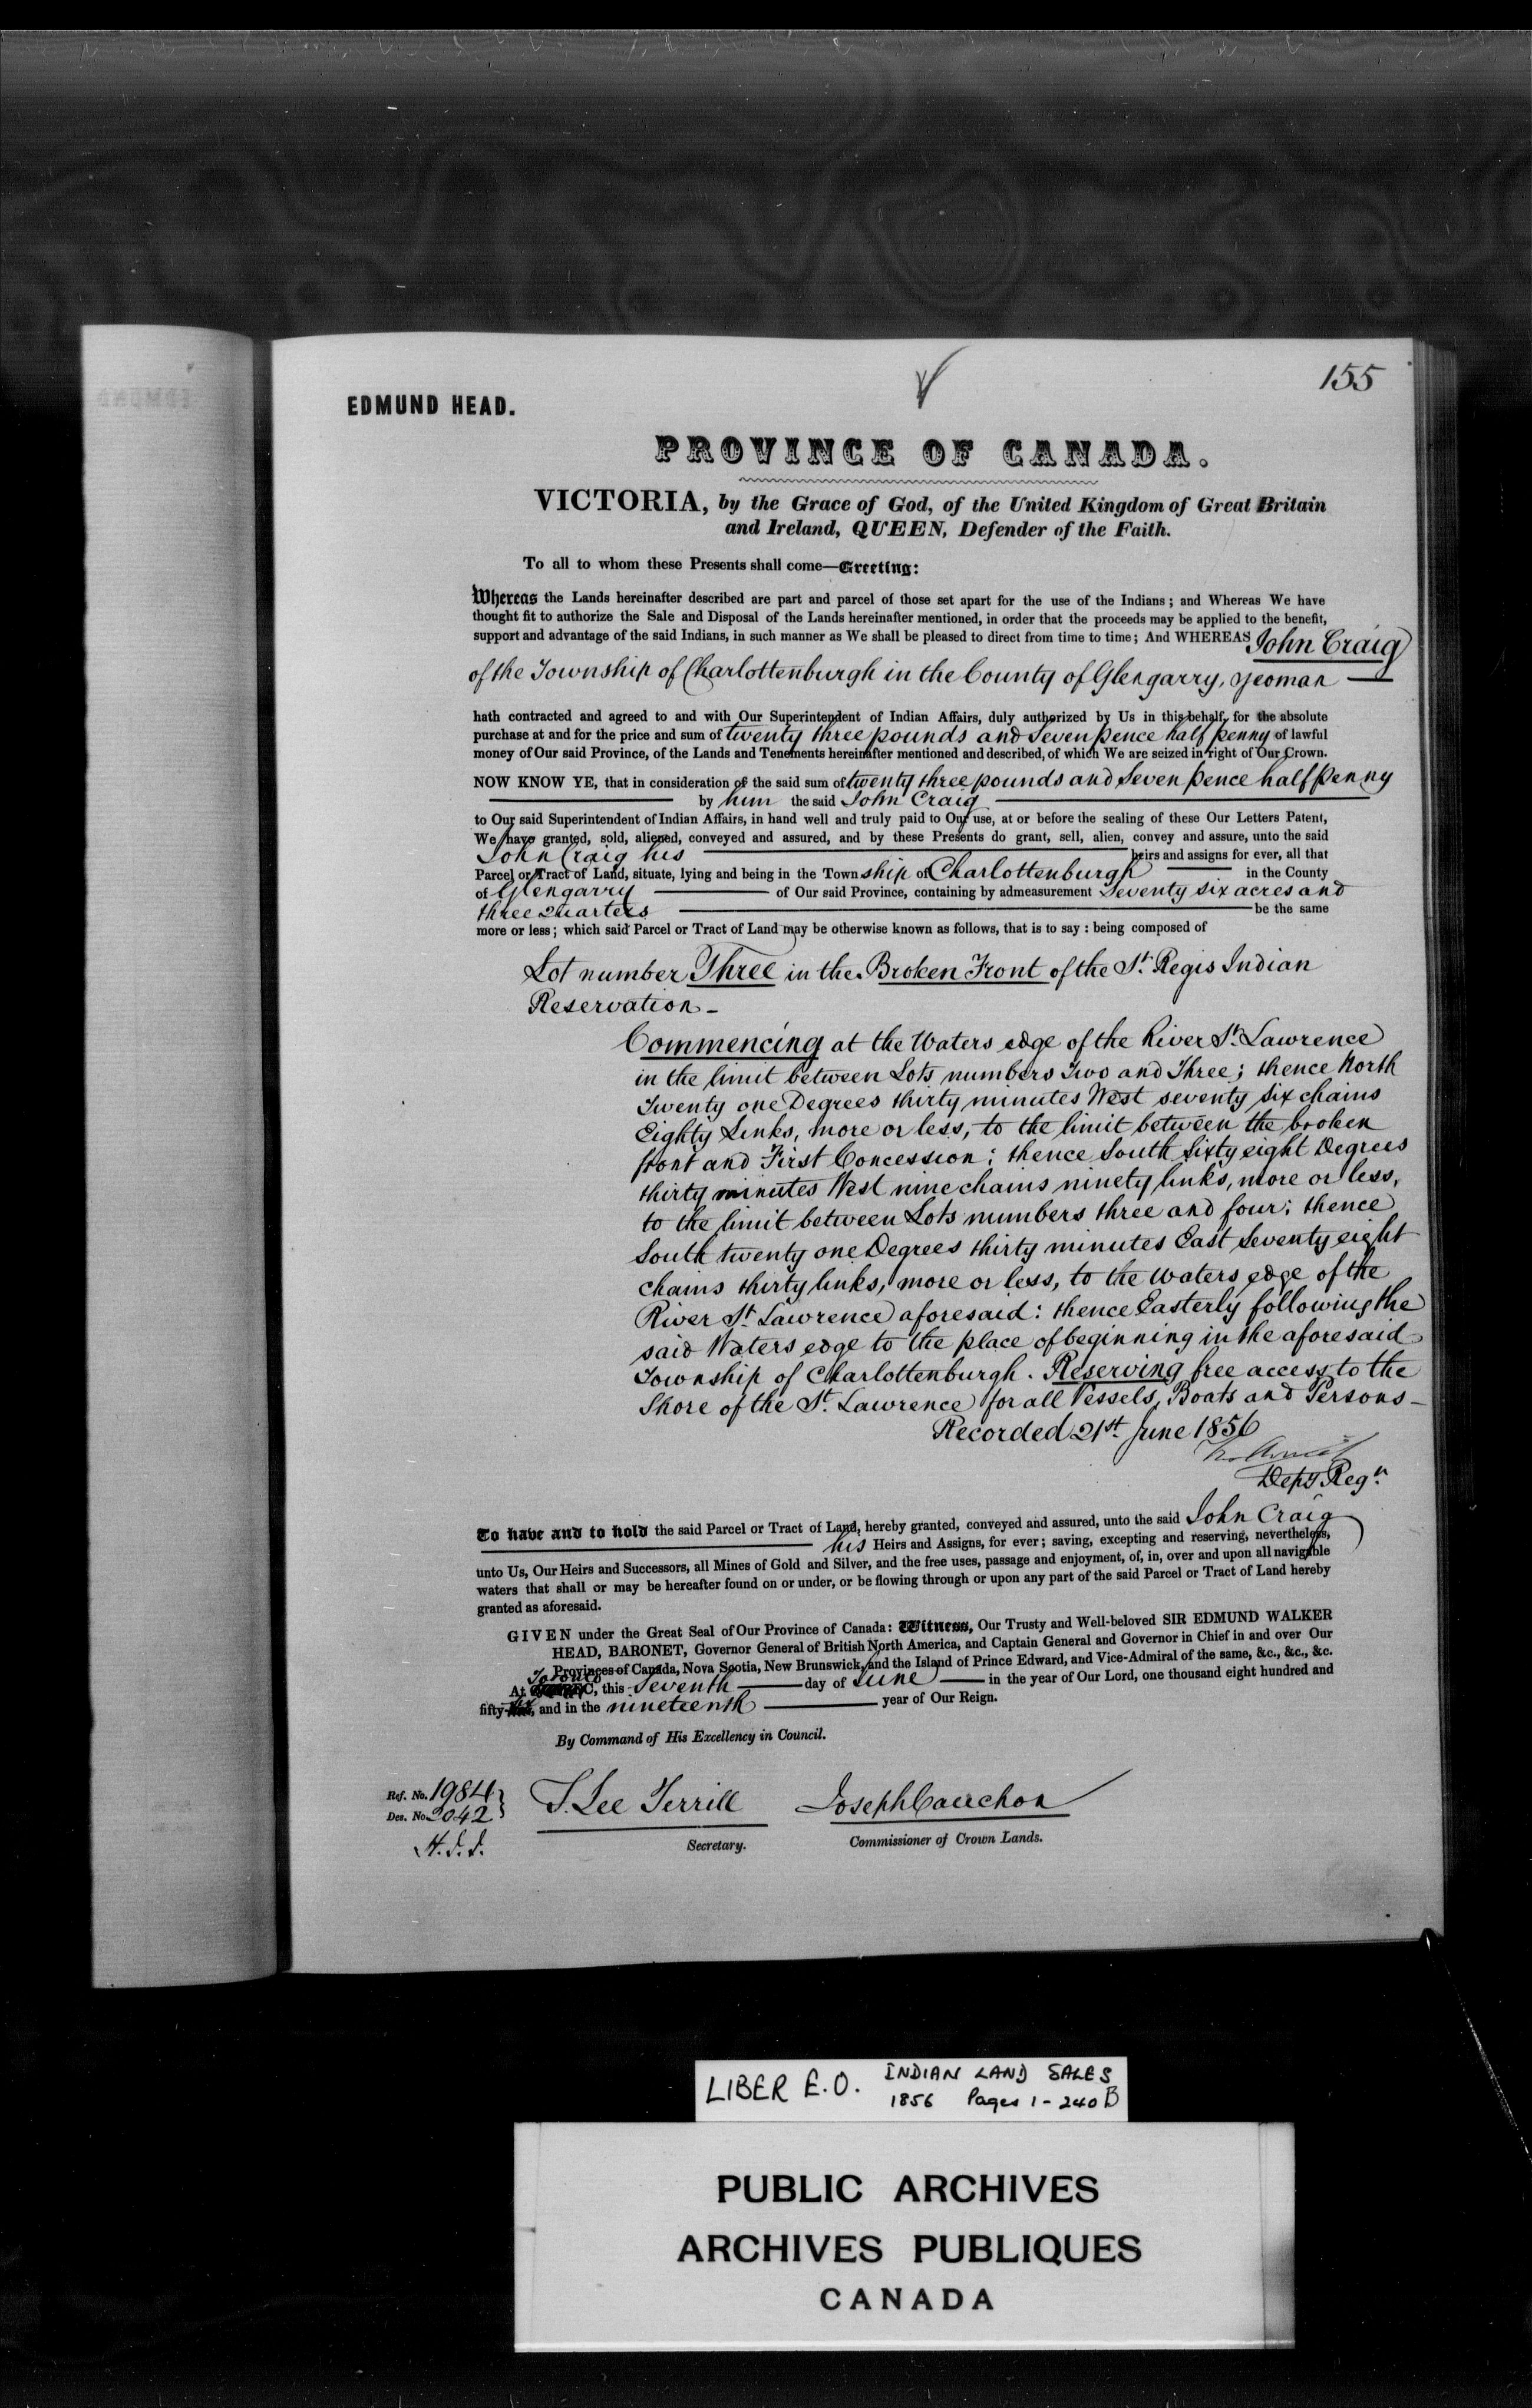 155
EDMUND HEAD.
PROVINCE OF CANADA.
VICTORIA, by the Grace of God, of the United Kingdom of Great Britain
and Ireland, QUEEN, Defender of the Faith.
To all to whom these Presents shall come—Greeting:
Whereas the Lands hereinafter described are part and parcel of those set apart for the use of the Indians; and Whereas We have
thought fit to authorize the Sale and Disposal of the Lands hereinafter mentioned, in order that the proceeds may be applied to the benefit,
support and advantage of the said Indians, in such manner as We shall be pleased to direct from time to time; And WHEREAS John Craig
of the Township of Charlottenburgh in the County of Glengarry, yeoman
hath contracted and agreed to and with Our Superintendent of Indian Affairs, duly authorized by Us in this behalf, for the absolute
purchase at and for the price and sum of twenty three pounds and Seven pence half penny of lawful
money of Our said Province, of the Lands and Tenements hereinafter mentioned and described, of which We are seized in right of Our Crown.
NOW KNOW YE, that in consideration of the said sum of twenty three pounds and Seven pence half penny
by him the said John Craig
to Our said Superintendent of Indian Affairs, in hand well and truly paid to Our use, at or before the sealing of these Our Letters Patent,
We have granted, sold, aliened, conveyed and assured, and by these Presents do grant, sell, alien, convey and assure, unto the said
John Craig his heirs and assigns for ever, all that
Parcel or Tract of Land, situate, lying and being in the Town ship of Charlottenburgh in the County
of Glengarry of Our said Province, containing by admeasurement Seventy six acres and
three Quarters be the same
more or less; which said Parcel or Tract of Land may be otherwise known as follows, that is to say: being composed of
Lot number Three in the Broken Front of the St. Regis Indian
Reservation -
Commencing at the Waters edge of the River St. Lawrence
in the limit between Lots numbers Two and Three; thence North
Twenty one Degrees thirty minutes West seventy six chains
Eighty Links, more or less, to the limit between the broken
front and First Concession: thence South Sixty eight Degrees
thirty minutes West nine chains ninety links, more or less,
to the limit between Lots numbers three and four; thence
South twenty one Degrees thirty minutes East Seventy eight
chains thirty links, more or less, to the waters edge of the
River St. Lawrence aforesaid: thence Easterly following the
said Waters edge to the place of beginning in the aforesaid
Township of Charlottenburgh. Reserving free access to the
Shore of the St. Lawrence for all Vessels, Boats and Persons -
Recorded 21st. June 1856
Depy Regr.
To have and to hold the said Parcel or Tract of Land, hereby granted, conveyed and assured, unto the said John Craig
his Heirs and Assigns, for ever; saving, excepting and reserving, nevertheless,
unto Us, Our Heirs and Successors, all Mines of Gold and Silver, and the free uses, passage and enjoyment, of, in, over and upon all navigable
waters that shall or may be hereafter found on or under, or be flowing through or upon any part of the said Parcel or Tract of Land hereby
granted as aforesaid.
GIVEN under the Great Seal of Our Province of Canada: Witness, Our Trusty and Well-beloved SIR EDMUND WALKER
HEAD, BARONET, Governor General of British North America, and Captain General and Governor in Chief in and over Our
Provinces of Canada, Nova Scotia, New Brunswick, and the Island of Prince Edward, and Vice-Admiral of the same, &c., &c., &c.
At Toronto, this Seventh day of June in the year of Our Lord, one thousand eight hundred and
fifty-six, and in the nineteenth year of Our Reign.
By Command of His Excellency in Council.
Ref. No. 1984
Des. No. 2042
T. Lee Terrill
Joseph Cauchon
Secretary.
Commissioner of Crown Lands.
LIBER E.O. INDIAN LAND SALES
1856 Pages 1-240B
PUBLIC ARCHIVES
ARCHIVES PUBLIQUES
CANADA